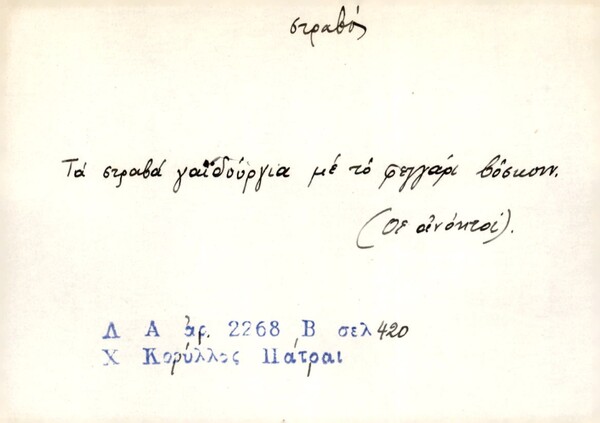 στραβός
Τά στραβά γαϊδούργια μέ τό φεγγάρι βόσκουν.
(Οἱ ἀνόητοι).
Λ Α ἀρ. 2268 Β σελ 420
Χ Κορύλλος Πάτραι